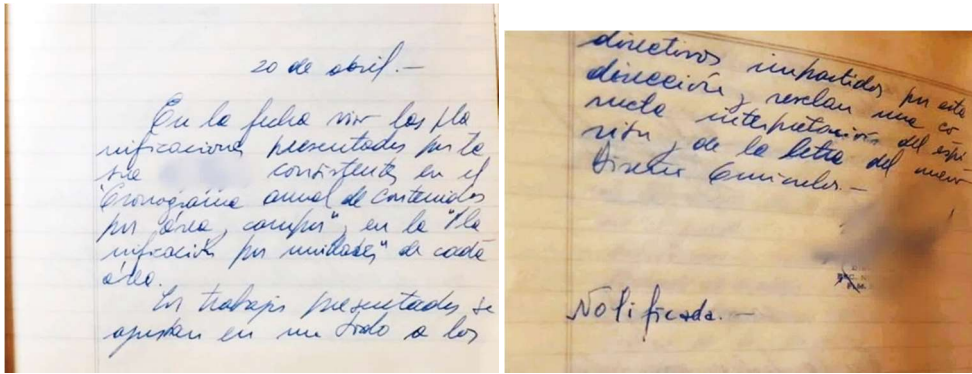 20 de abril.-
En la fecha vior las pla
nificaciones presentadas por la
sra consistentes en el
"Cronograma anual de contenidos
por área, campos", en la "Pla
nificación por unidades" de cada
área.
Los trabajos presentados se
ajustan en un todo a los
directivos impartidos por esta
dirección y revelan una co
rrecta interpretación del espí-
ritu y de la letra del nuevo
Diseño Curricular.-
Notificada.-